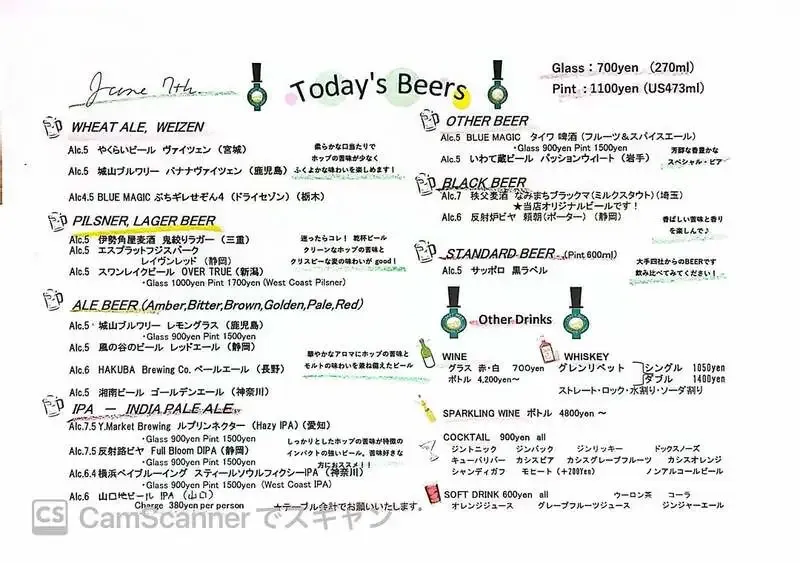 June 7th.
Today's Beers
Glass：700yen （270ml）
Pint ：1100yen (US473ml)
WHEAT ALE, WEIZEN
Alc.5 やくらいビール ヴァイツェン（宮城）
Alc.5 城山ブルワリー バナナヴァイツェン（鹿児島）
Alc4.5 BLUE MAGIC ぶちギレせぞん4（ドライセゾン）（栃木）
柔らかな口当たりで
ホップの苦味が少なく
ふくよかな味わいを楽しめます！
PILSNER, LAGER BEER
Alc.5 伊勢角屋麦酒 鬼絞りラガー（三重）
Alc.5 エスプラットフジスパーク
レイヴンレッド（静岡）
Alc.5 スワンレイクビール OVER TRUE（新潟）
・Glass 1000yen Pint 1700yen (West Coast Pilsner)
迷ったらコレ！ 乾杯ビール
クリーンなホップの苦味と
クリスピーな麦の味わいが good！
ALE BEER (Amber,Bitter,Brown,Golden,Pale,Red)
Alc.5 城山ブルワリー レモングラス（鹿児島）
・Glass 900yen Pint 1500yen
Alc.5 風の谷のビール レッドエール（静岡）
Alc.6 HAKUBA Brewing Co. ペールエール（長野）
Alc.5 湘南ビール ゴールデンエール（神奈川）
華やかなアロマにホップの苦味と
モルトの味わいを兼ね備えたビール
IPA － INDIA PALE ALE
Alc.7.5 Y.Market Brewing ルプリンネクター（Hazy IPA）（愛知）
・Glass 900yen Pint 1500yen
Alc.7.5 反射炉ビヤ Full Bloom DIPA（静岡）
・Glass 900yen Pint 1500yen
Alc.6.4 横浜ベイブルーイング スティールソウルフィクシーIPA（神奈川）
・Glass 900yen Pint 1500yen (West Coast IPA)
Alc.6 山口地ビール IPA（山口）
しっかりとしたホップの苦味が特徴の
インパクトの強いビール。苦味好きな
方におススメ！！
Charge 380yen per person
★テーブル会計でお願いいたします。
OTHER BEER
Alc.5 BLUE MAGIC タイワ 啤酒（フルーツ＆スパイスエール）
・Glass 900yen Pint 1500yen
Alc.5 いわて蔵ビール パッションウィート（岩手）
芳醇な香豊かな
スペシャル・ビア
BLACK BEER
Alc.7 秩父麦酒 なみまちブラックマ（ミルクスタウト）（埼玉）
★当店オリジナルビールです！
Alc.6 反射炉ビヤ 頼朝（ポーター）（静岡）
香ばしい苦味と香り
を楽しんで♪
STANDARD BEER （Pint 600ml）
Alc.5 サッポロ 黒ラベル
大手四社からのBEERです
飲み比べてみてください！
Other Drinks
WINE
グラス 赤・白 700yen
ボトル 4,200yen～
WHISKEY
グレンリベット シングル 1050yen
ダブル 1400yen
ストレート・ロック・水割り・ソーダ割り
SPARKLING WINE ボトル 4800yen ～
COCKTAIL 900yen all
ジントニック ジンバック ジンリッキー ドックスノーズ
キューバリバー カシスビア カシスグレープフルーツ カシスオレンジ
シャンディガフ モヒート（＋200Yen） ノンアルコールビール
SOFT DRINK 600yen all ウーロン茶 コーラ
オレンジジュース グレープフルーツジュース ジンジャーエール
CS CamScanner でスキャン